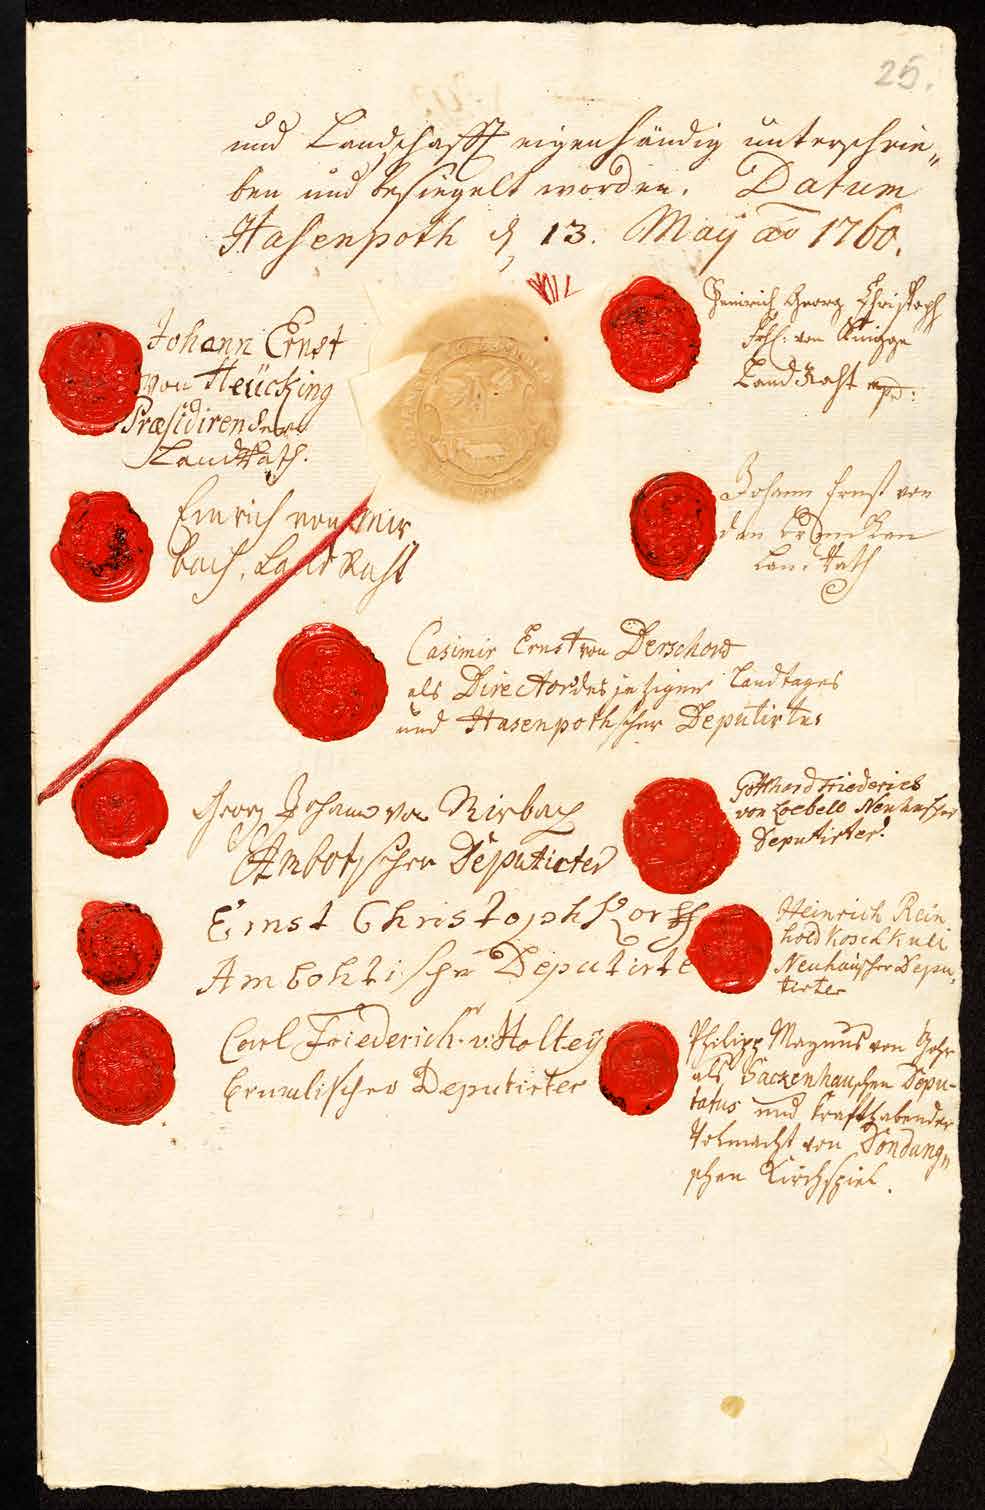 25.
und Landschafft eigenhändig unterschrie„
ben und besiegelt worden. Datum
Hasenpoth d 13. May ao 1760.
Johann Ernst
von Heücking
Præsidirender
LandRath.
Heinrich Georg Christoph
Frh: von Knigge
Land Raht mp:
Emrich von Mir
bach, Land Raht
Johann Ernst von
den Brincken
Land Rath
Casimir Ernst von Derschow
als Director des jetzigen Landtages
und Hasenpothscher Deputirter
Georg Johann von Mirbach
Ambotscher Deputirter
Gotthard Friederich
von Loebell Neuhauscher
Deputirter
Ernst Christoph Korff
Ambohtischer Deputirter
Heinrich Rein
hold Koschkull
Neuhauscher Depu„
tirter
Carl Friederich v: Holtey
Erwalischer Deputirter
Philipp Magnus von Gohr
als Sackenhauschen Depu-
tatus und krafft habender
Volmacht von Dondang„
schen Kirchspiel.